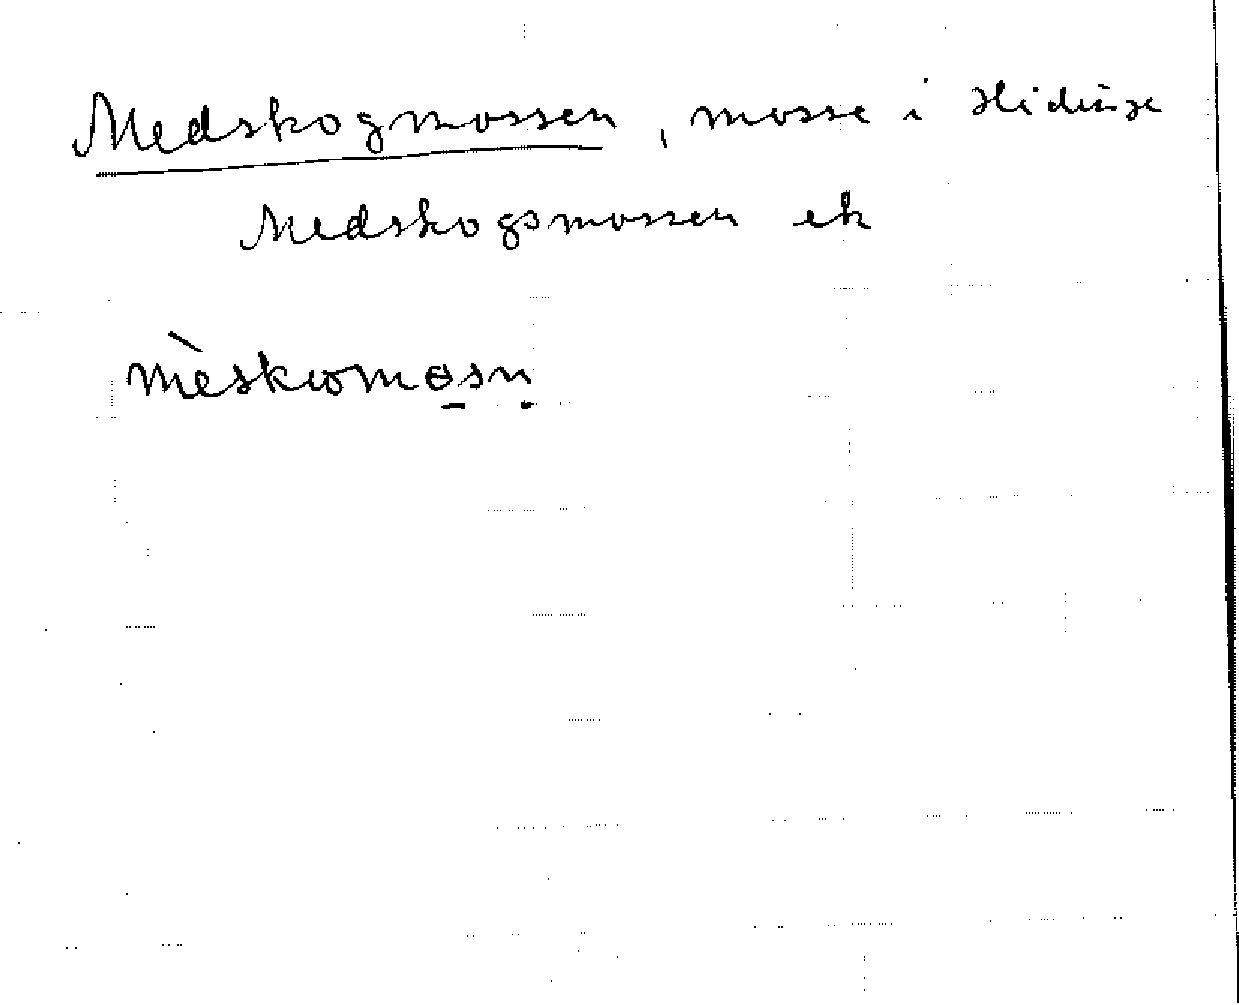 Medskogmossen, mosse i Hidinge
Medskogsmossen ek
mèskωmɵsn̥